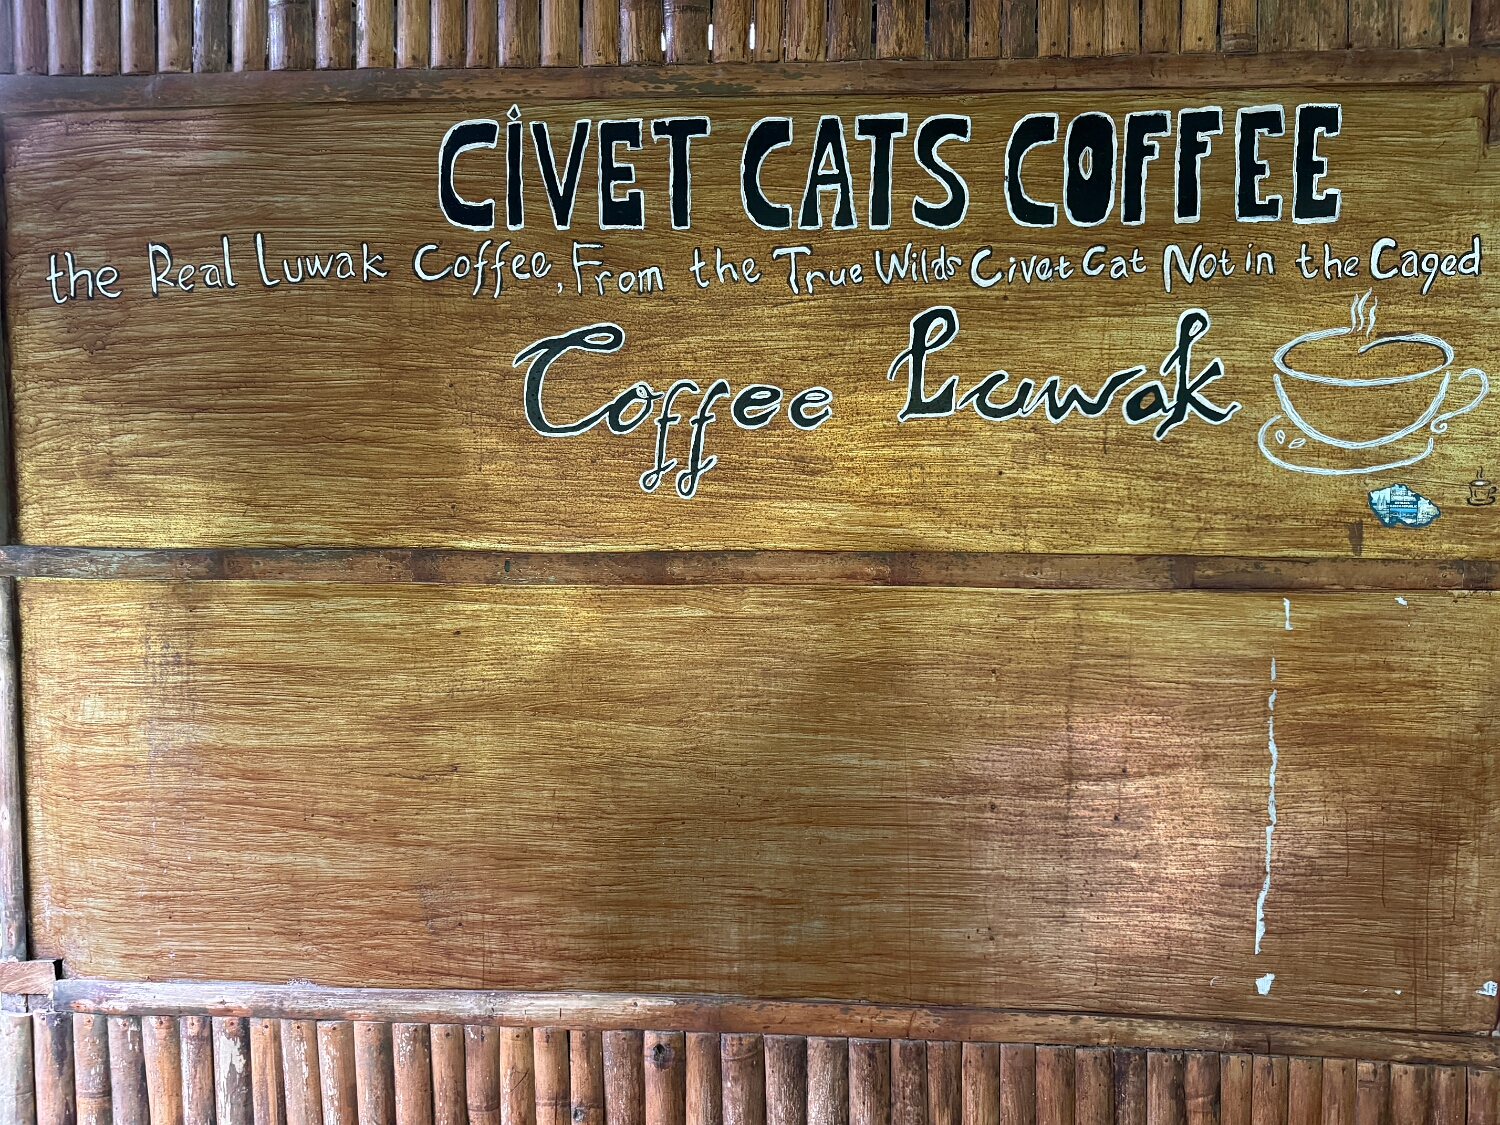 CiVET CATS COFFEE
the Real Luwak Coffee, From the True Wilds Civet Cat Not in the Caged
Coffee Luwak